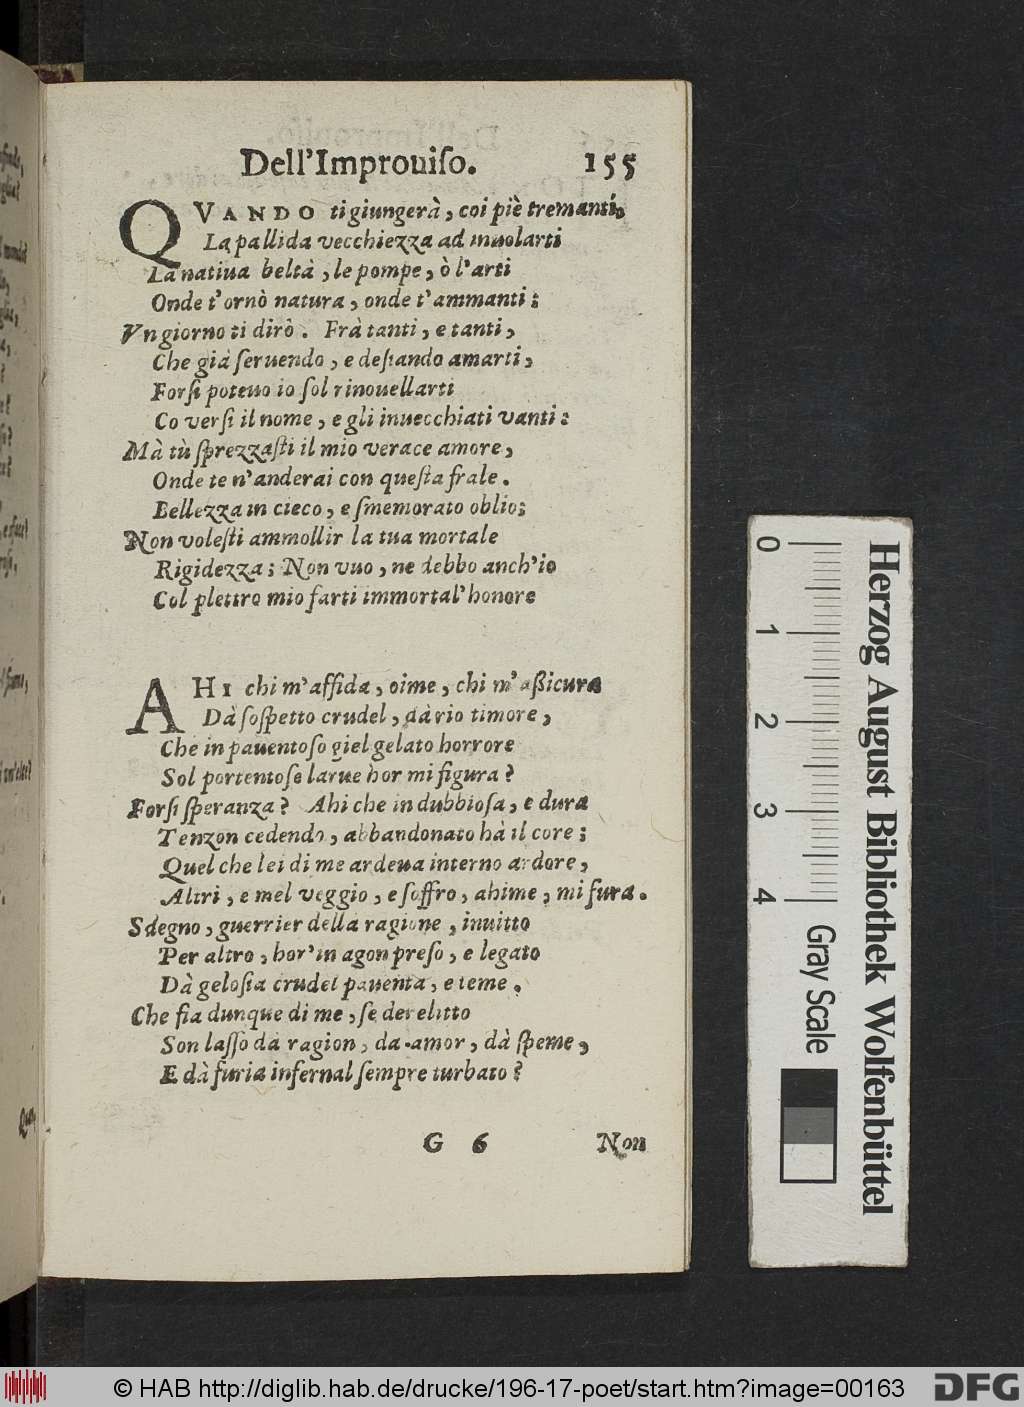 Dell'Improuiſo. 155
QVANDO ti giungerà, coi piè tremanti,
La pallida vecchiezza ad inuolarti
La natiua beltà, le pompe, ò l'arti
Onde t'ornò natura, onde t'ammanti:
Vn giorno ti dirò. Frà tanti, e tanti,
Che già ſeruendo, e deſiando amarti,
Forſi poteuo io ſol rinouellarti
Co verſi il nome, e gli inuecchiati vanti:
Mà tù ſprezzaſti il mio verace amore,
Onde te n'anderai con queſta frale.
Bellezza in cieco, e ſmemorato oblio;
Non voleſti ammollir la tua mortale
Rigidezza; Non vuo, ne debbo anch'io
Col plettro mio farti immortal' honore
AHI chi m'affida, oime, chi m'aßicura
Dà ſoſpetto crudel, dà rio timore,
Che in pauentoſo giel gelato horrore
Sol portentoſe larue hor mi figura?
Forſi ſperanza? Ahi che in dubbioſa, e dura
Tenzon cedendo, abbandonato hà il core;
Quel che lei di me ardeua interno ardore,
Altri, e mel veggio, e ſoffro, ahime, mi fura.
Sdegno, guerrier della ragione, inuitto
Per altro, hor' in agon preſo, e legato
Dà geloſia crudel pauenta, e teme.
Che fia dunque di me, ſe derelitto
Son laſſo da ragion, da amor, dà ſpeme,
E dà furia infernal ſempre turbato?
G 6 Non
0 1 2 3 4
Gray Scale
Herzog August Bibliothek Wolfenbüttel
© HAB http://diglib.hab.de/drucke/196-17-poet/start.htm?image=00163
DFG